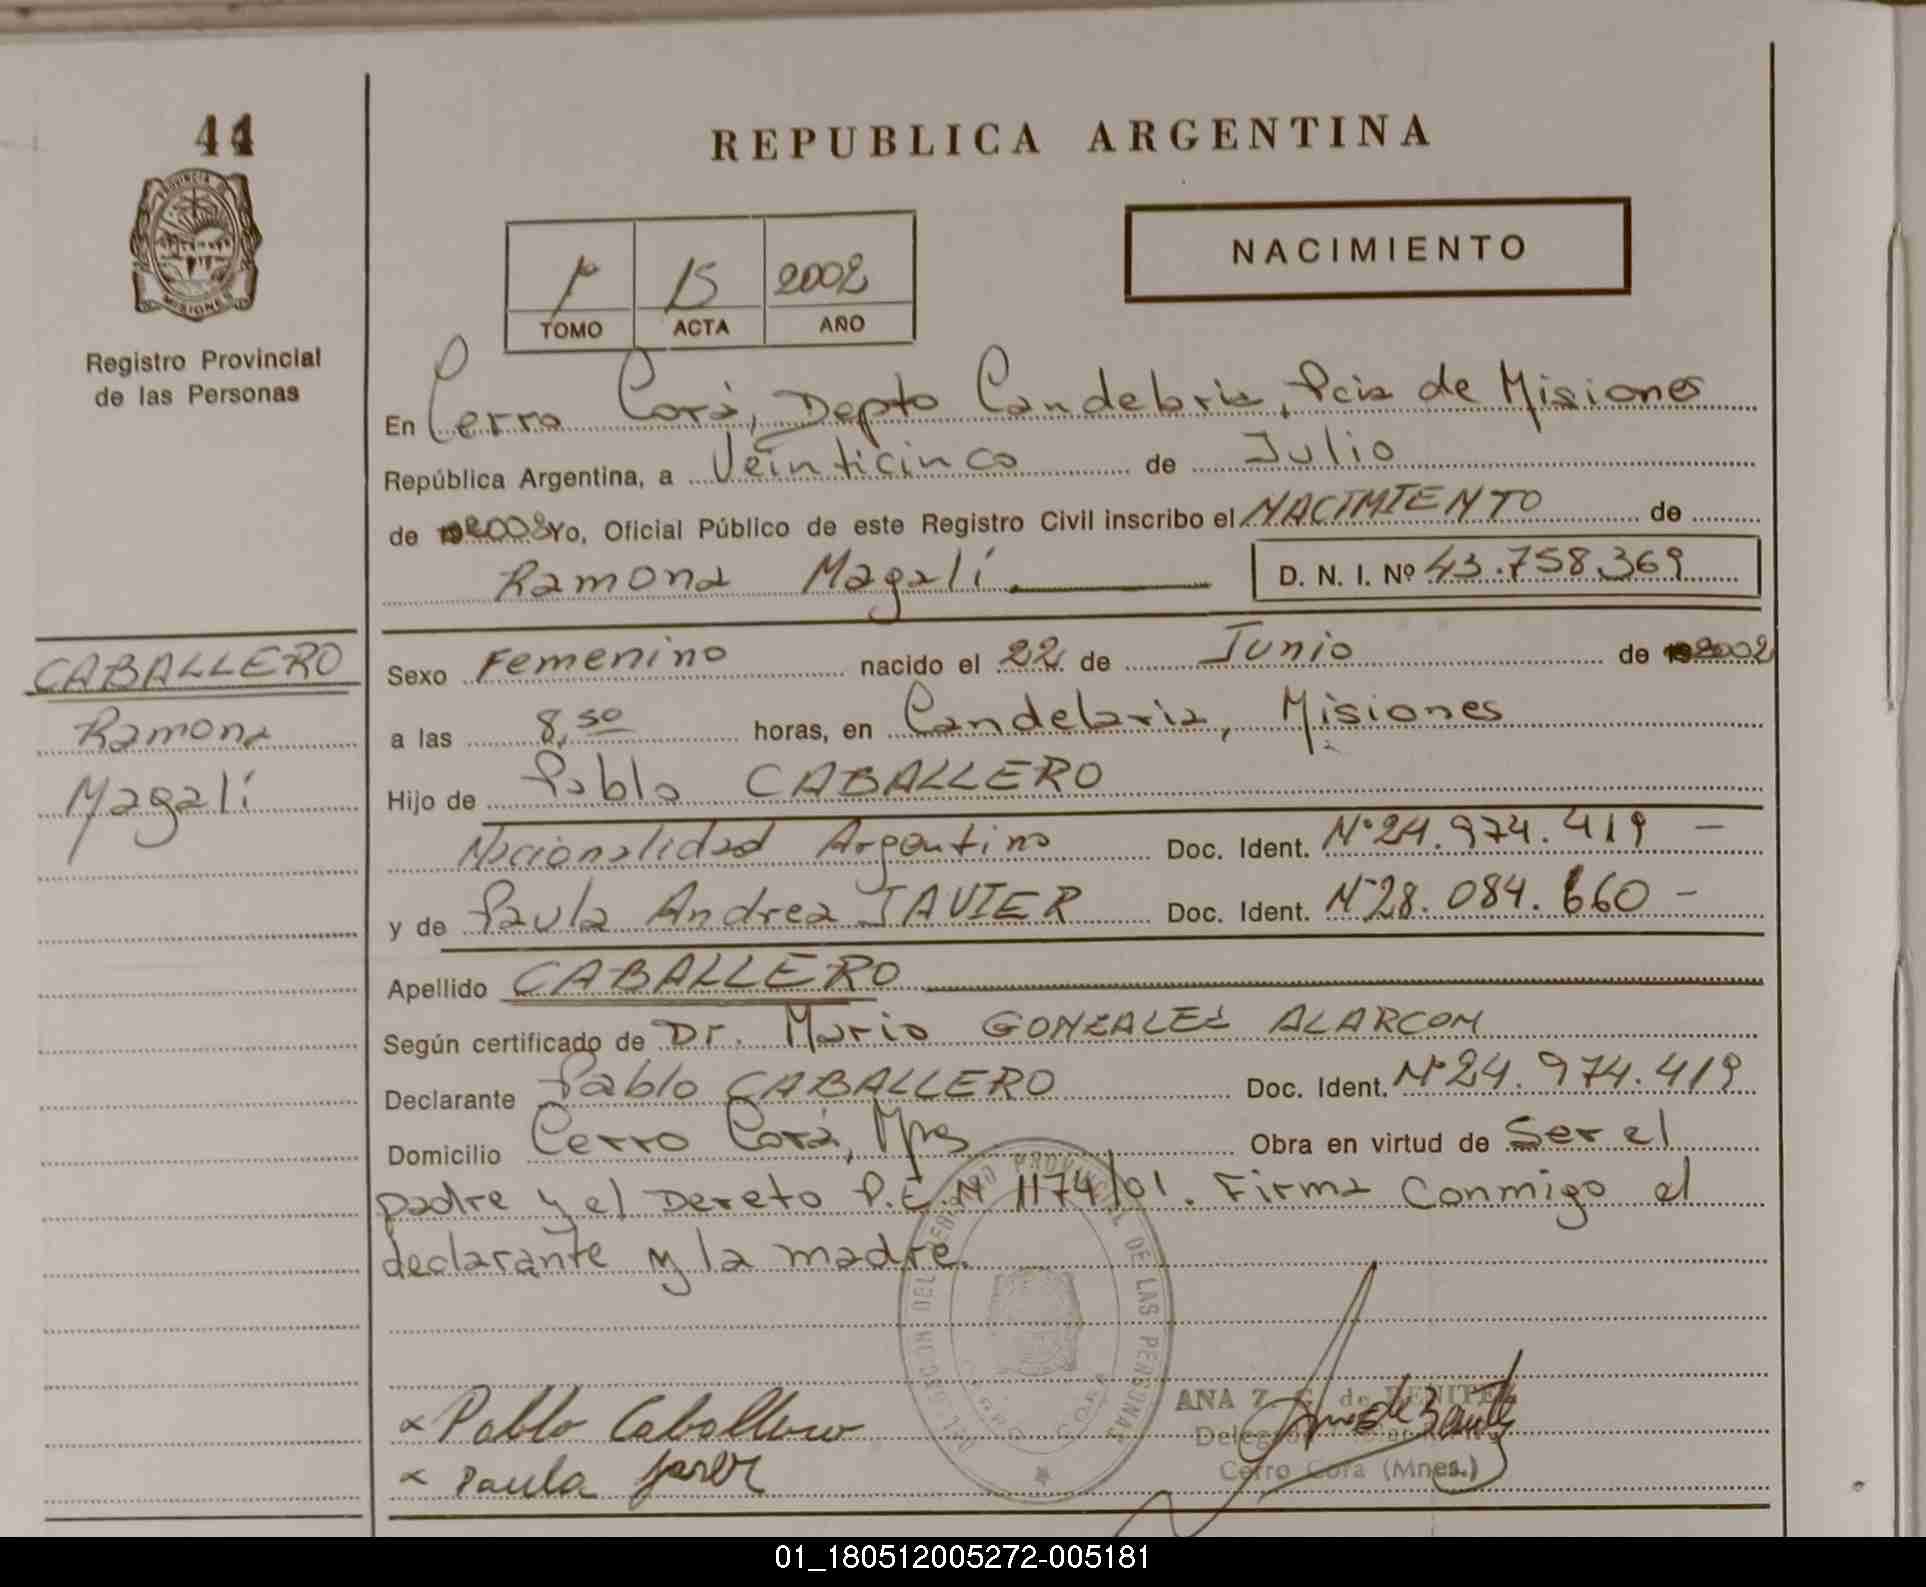 44
REPUBLICA ARGENTINA
PROVINCIA DE
MISIONES
NACIMIENTO
1º 15 2002
TOMO ACTA AÑO
Registro Provincial
de las Personas
En Cerro Corá, Depto Candelaria, Pcia de Misiones
República Argentina, a Veinticinco de Julio
de 2002 Yo, Oficial Público de este Registro Civil inscribo el NACIMIENTO de
Ramona Magalí D. N. I. Nº 43.758.369
CABALLERO
Ramona
Magalí
Sexo Femenino nacido el 22 de Junio de 2002
a las 8,50 horas, en Candelaria, Misiones
Hijo de Pablo CABALLERO
Nacionalidad Argentino Doc. Ident. Nº 24.974.419 -
y de Paula Andrea JAVIER Doc. Ident. Nº 28.084.660 -
Apellido CABALLERO
Según certificado de Dr. Mario GONZALEZ ALARCON
Declarante Pablo CABALLERO Doc. Ident. Nº 24.974.419
Domicilio Cerro Corá, Mnes Obra en virtud de Ser el
padre y el Dereto P.E.N 1174/01. Firma Conmigo el
declarante y la madre.
PROVINCIAL DE LAS PERSONAS
CERRO CORA
ANA Z. C. de BENITEZ
Cerro Cora (Mnes.)
x Pablo Caballero
x Paula Javier
01_180512005272-005181